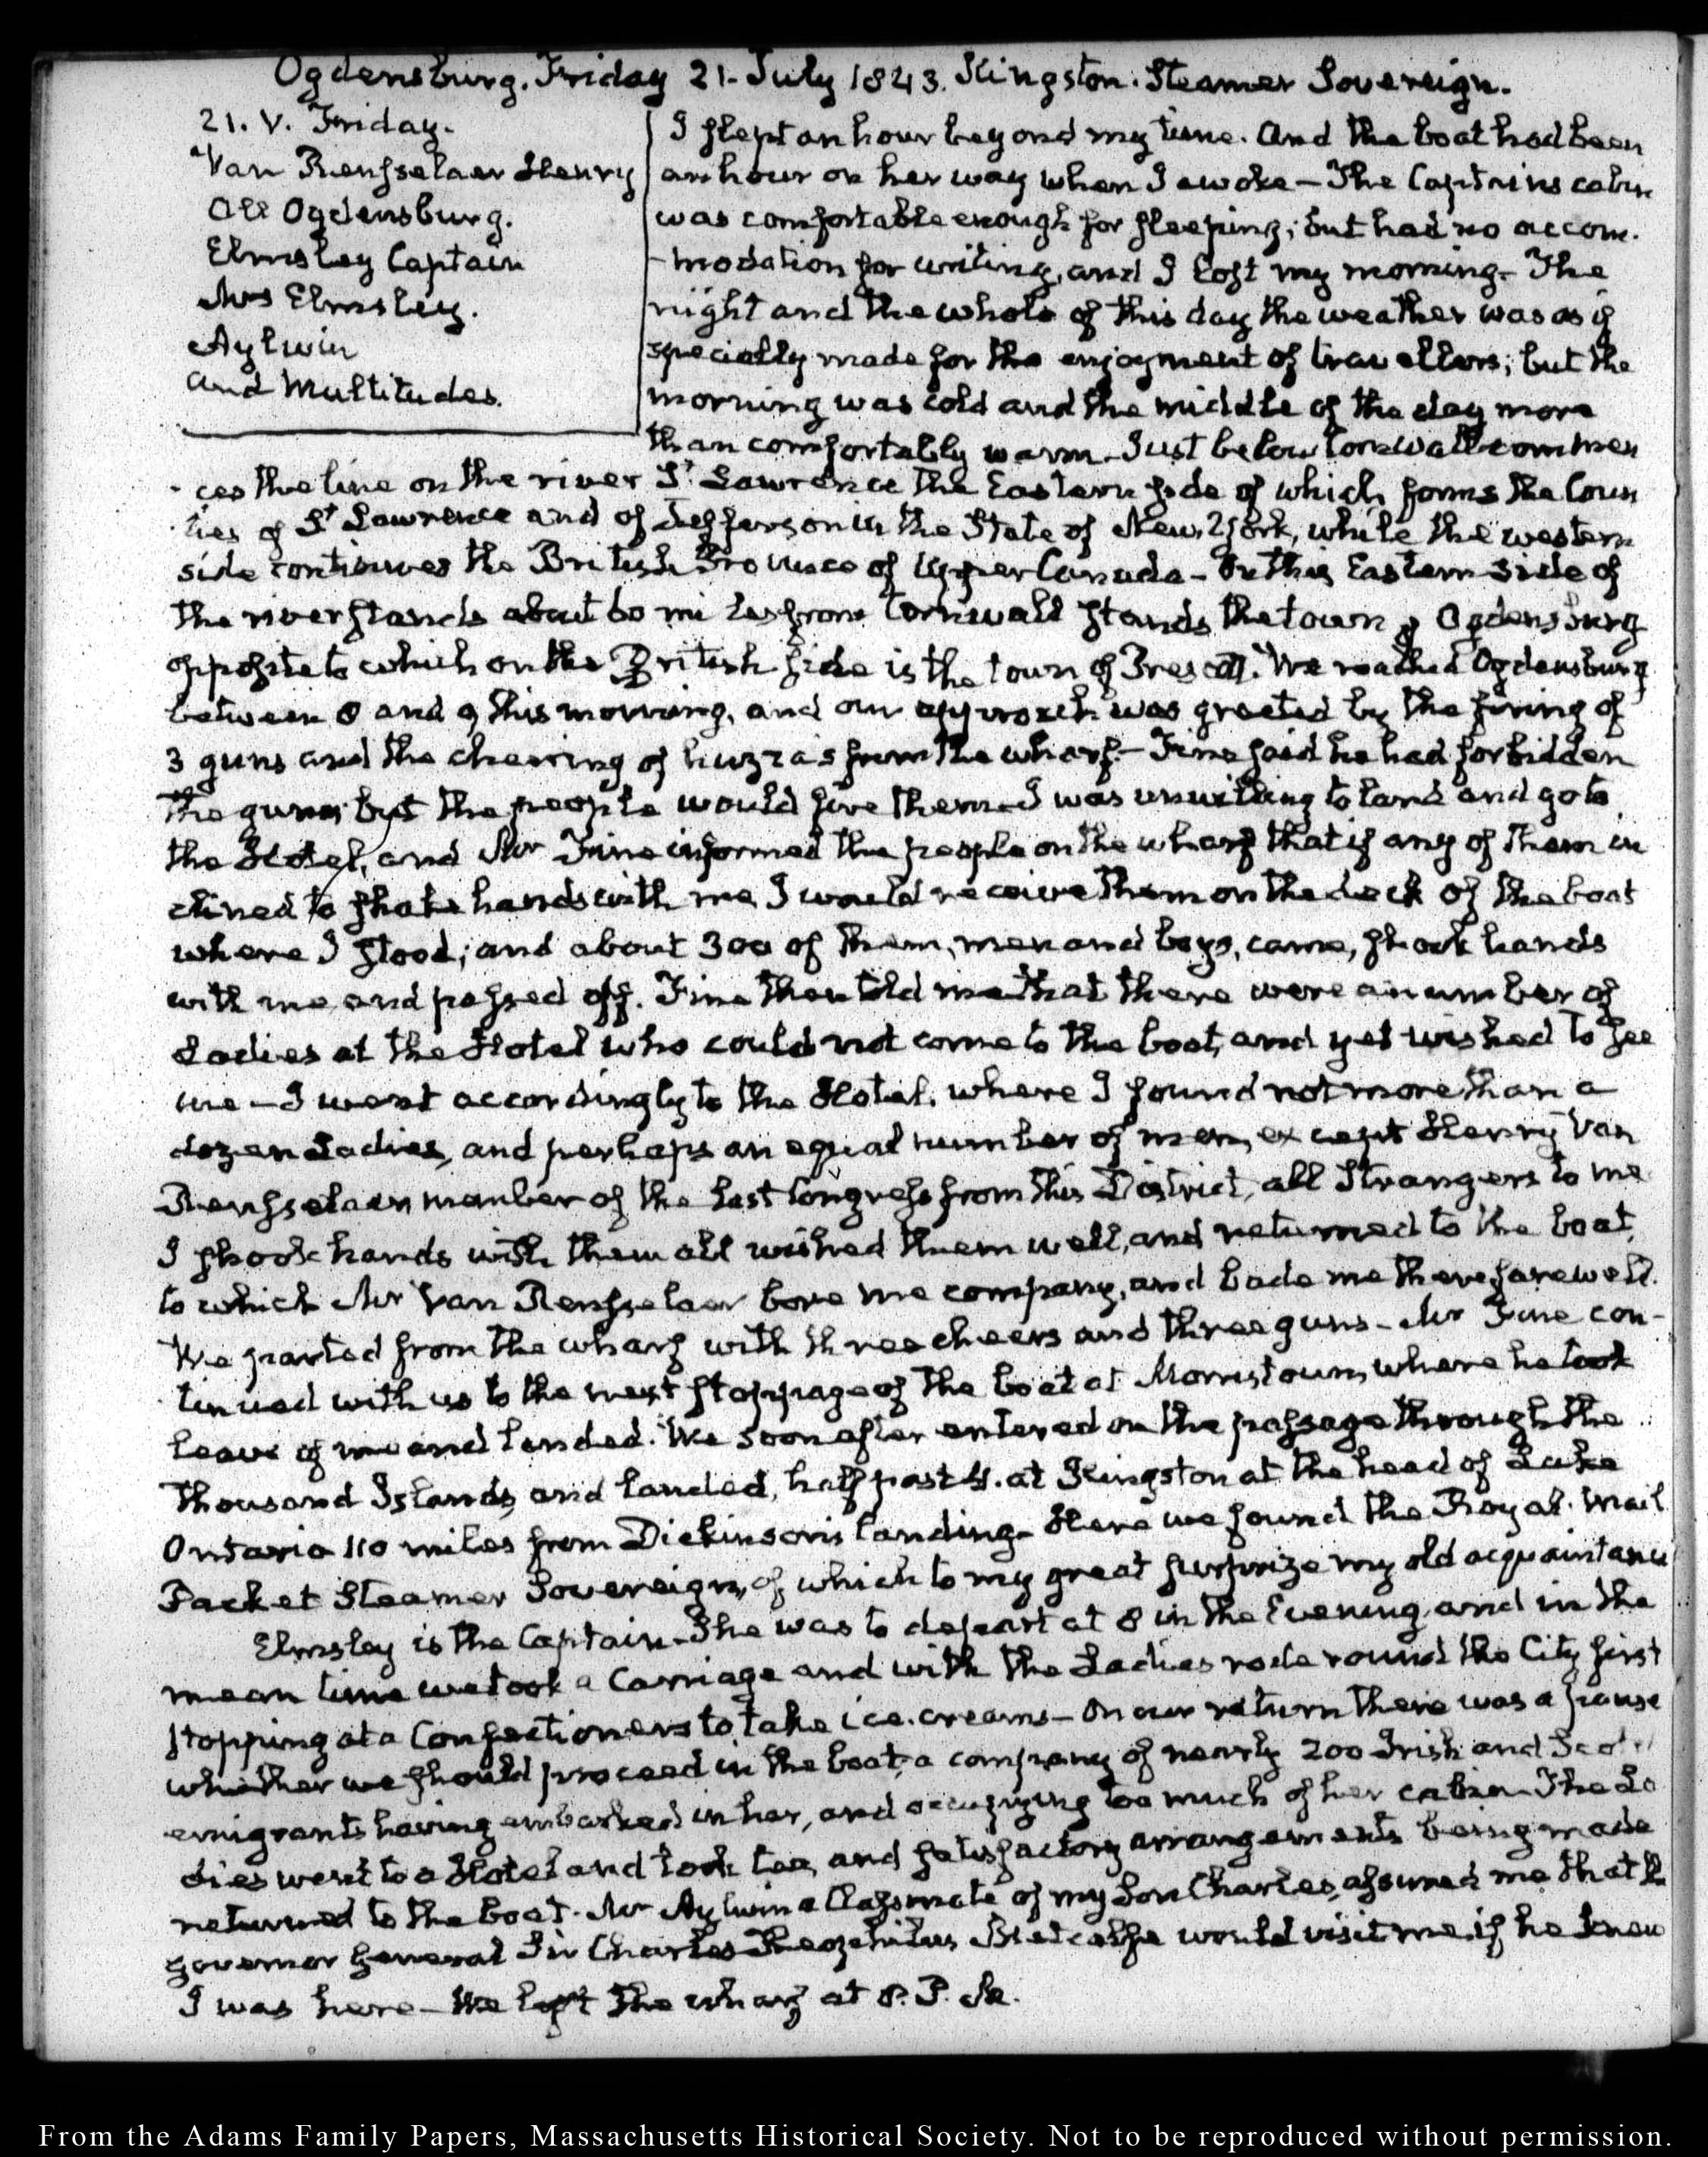 Ogdensburg. Friday 21. July 1843. Kingston. Steamer Sovereign.
21. V. Friday.
Van Rensselaer Henry
All Ogdensburg.
Elmsley Captain
Mrs Elmsley.
Aylwin
and Multitudes.
I slept an hour beyond my time. And the boat had been
an hour on her way when I awoke — The Captains cabin
was comfortable enough for sleeping; but had no accom-
-modation for writing, and I lost my morning. The
night and the whole of this day the weather was as if
specially made for the enjoyment of travellers; but the
morning was cold and the middle of the day more
than comfortably warm. Just below Cornwall commen
ces the line on the river St Lawrence the Eastern side of which forms the Coun
ties of St Lawrence and of Jefferson in the State of New York, while the western
side continues the British Province of Upper Canada — On this Eastern side of
the river stands about 60 miles from Cornwall stands the town of Ogdensburg
opposite to which on the British side is the town of Prescott. We reached Ogdensburg
between 8 and 9 this morning, and our approach was greeted by the firing of
3 guns and the cheering of huzza's from the wharf — Fine said he had forbidden
the guns; but the people would fire them — I was unwilling to land and go to
the Hotel, and Mr Fine informed the people on the wharf that if any of them in
clined to shake hands with me, I would receive them on the deck of the boat
where I stood; and about 300 of them, men and boys, came, shook hands
with me and passed off. Fine then told me that there were a number of
Ladies at the Hotel who could not come to the boat, and yet wished to see
me — I went accordingly to the Hotel, where I found not more than a
dozen Ladies, and perhaps an equal number of men, except Henry Van
Rensselaer member of the last Congress from this District, all Strangers to me
I shook hands with them all wished them well, and returned to the boat,
to which Mr Van Rensselaer bore me company, and bade me there farewell.
We parted from the wharf with three cheers and three guns — Mr Fine con-
tinued with us to the next stoppage of the boat at Morristown, where he took
leave of me and landed. We soon after entered on the passage through the
Thousand Islands, and landed, half past 4. at Kingston at the head of Lake
Ontario 110 miles from Dickinson's landing. Here we found the Royal Mail
Packet Steamer Sovereign, of which to my great surprize my old acquaintance
Elmsley is the Captain — She was to depart at 8 in the Evening, and in the
mean time we took a Carriage and with the Ladies rode round the City first
stopping at a Confectioners to take ice creams — On our return there was a pause
whether we should proceed in the boat, a company of nearly 200 Irish and
emigrants having embarked in her, and occupying too much of her cabin — The La
dies went to a Hotel and took tea, and satisfactory arrangements being made
returned to the boat. Mr Aylwin a Classmate of my Son Charles, assured me that the
governor General Sir Charles Theophilus Metcalfe would visit me, if he knew
I was here — We left the wharf at 8. P. M.
From the Adams Family Papers, Massachusetts Historical Society. Not to be reproduced without permission.